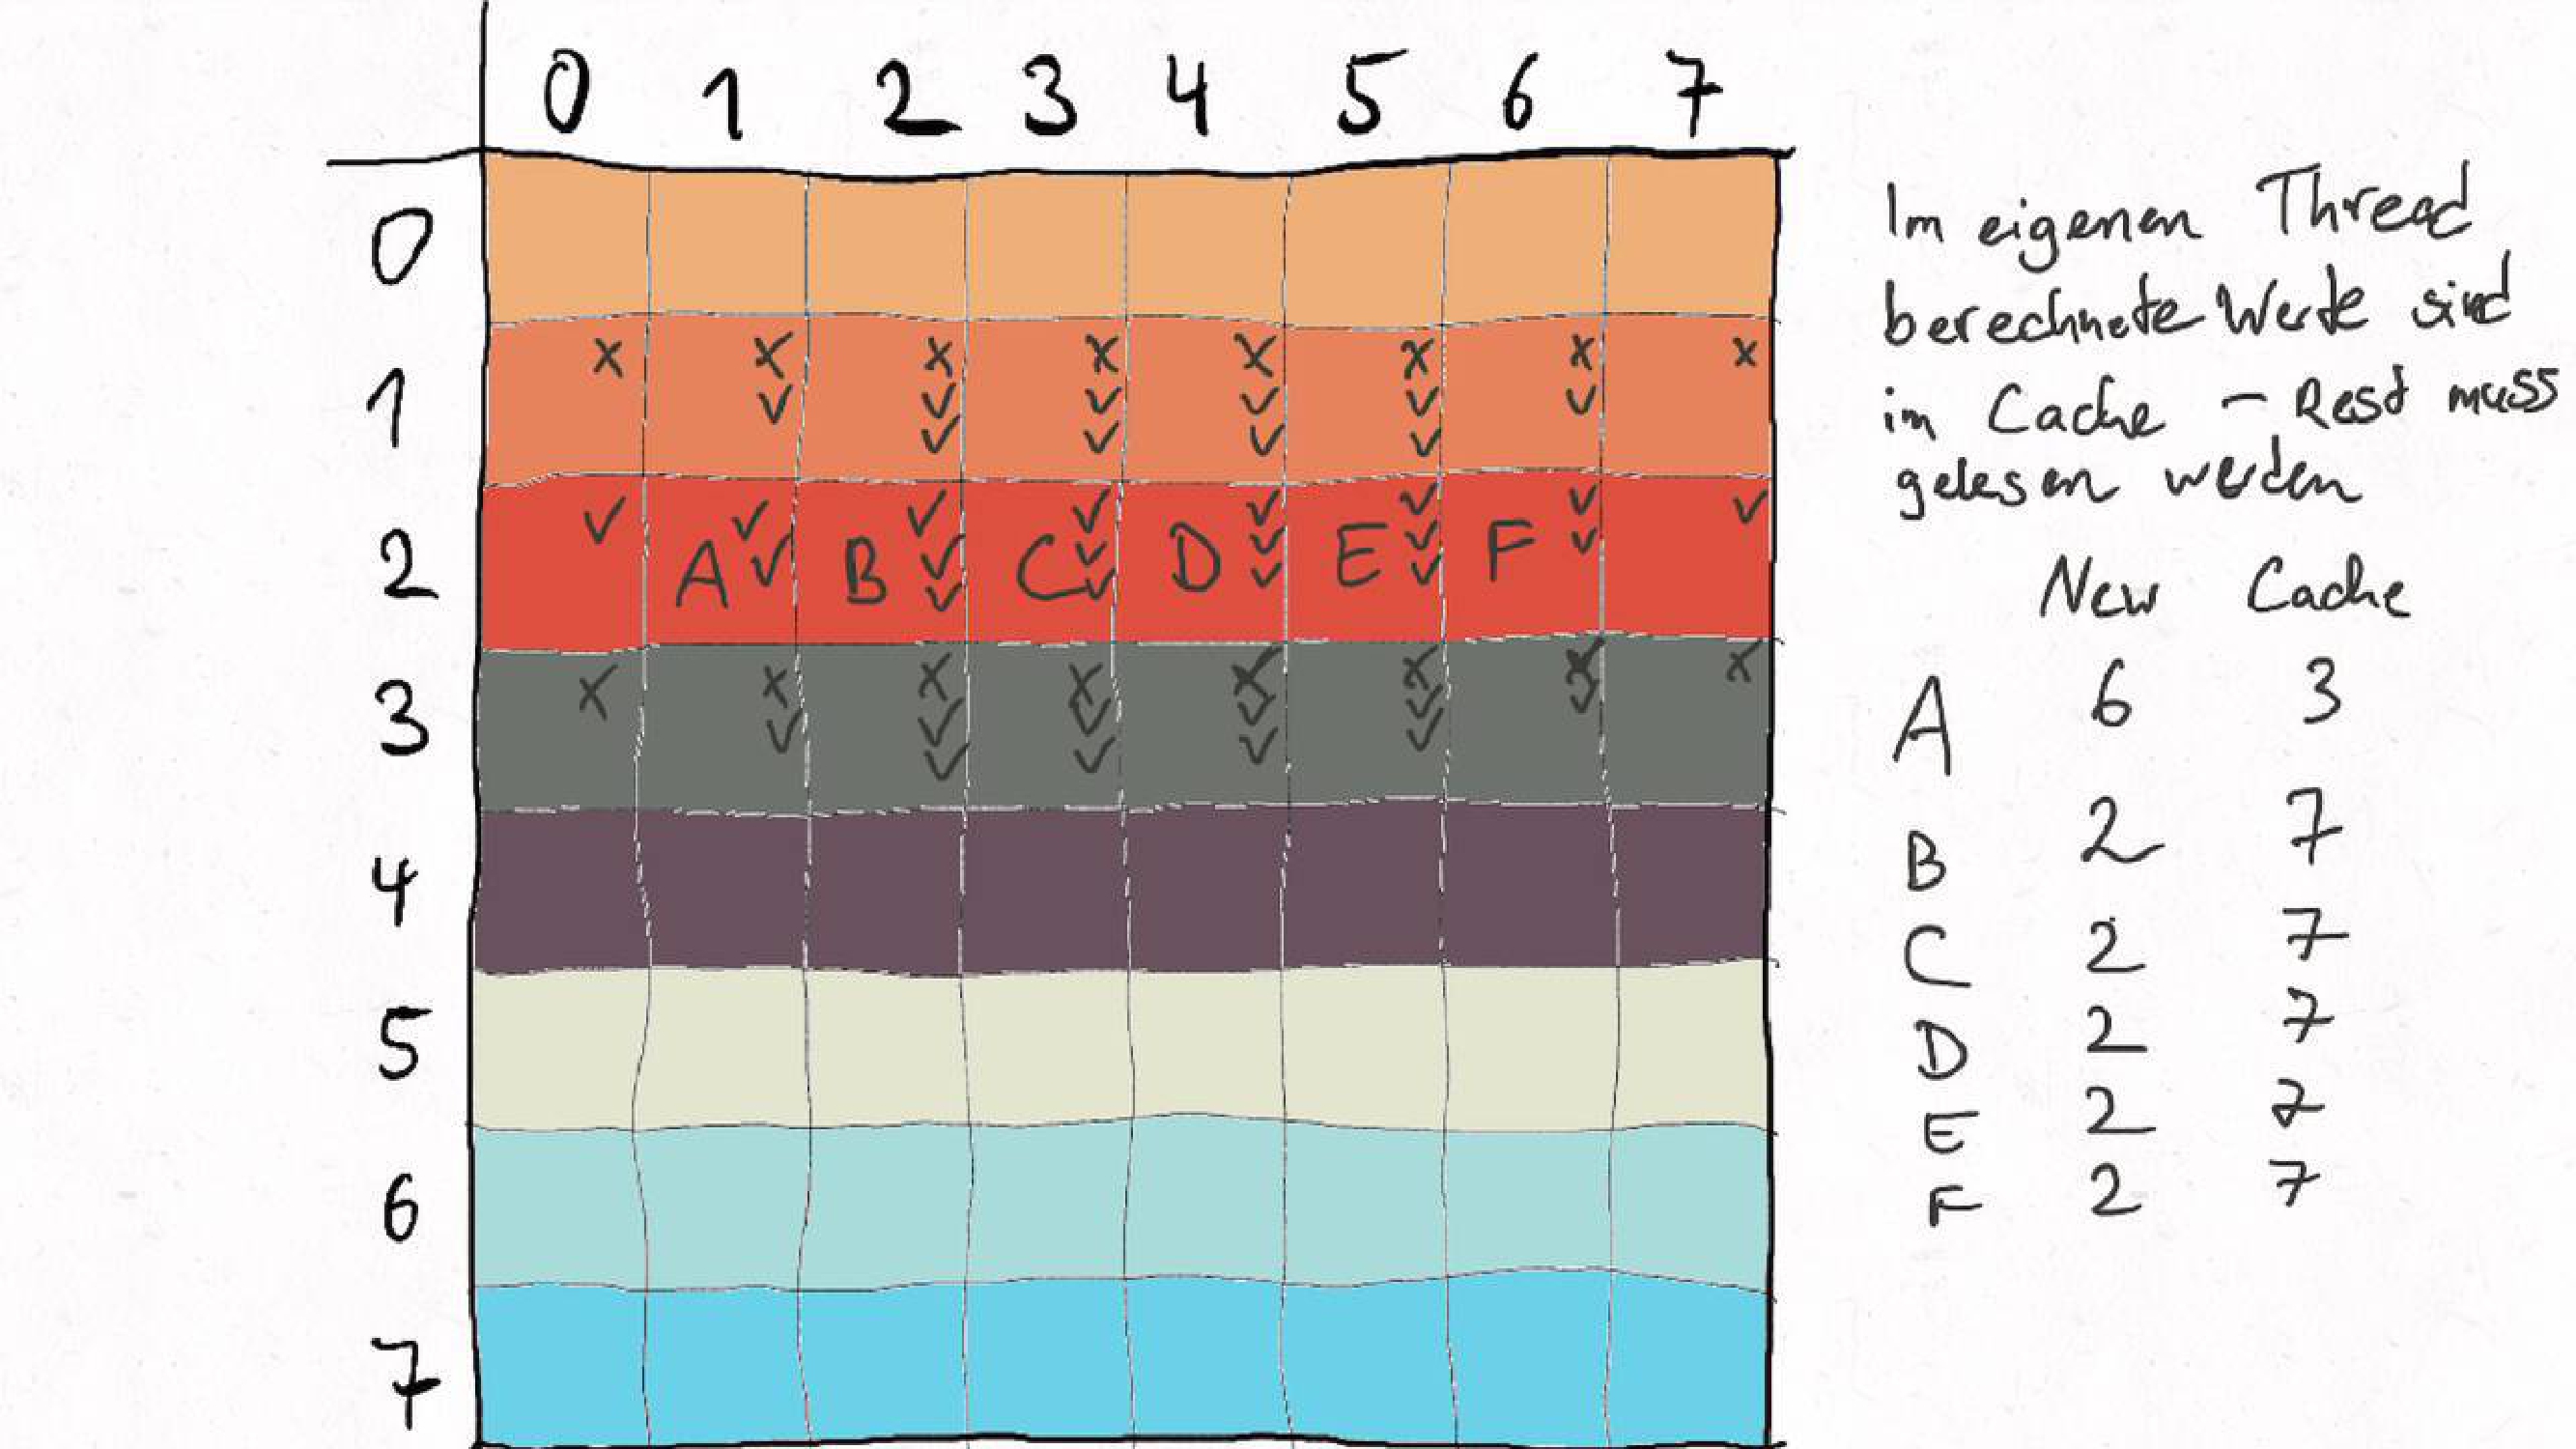 0 1 2 3 4 5 6 7
0
1
2 A B C D E F
3
4
5
6
7
Im eigenen Thread
berechnete Werte sind
im Cache - Rest muss
gelesen werden
New Cache
A 6 3
B 2 7
C 2 7
D 2 7
E 2 7
F 2 7